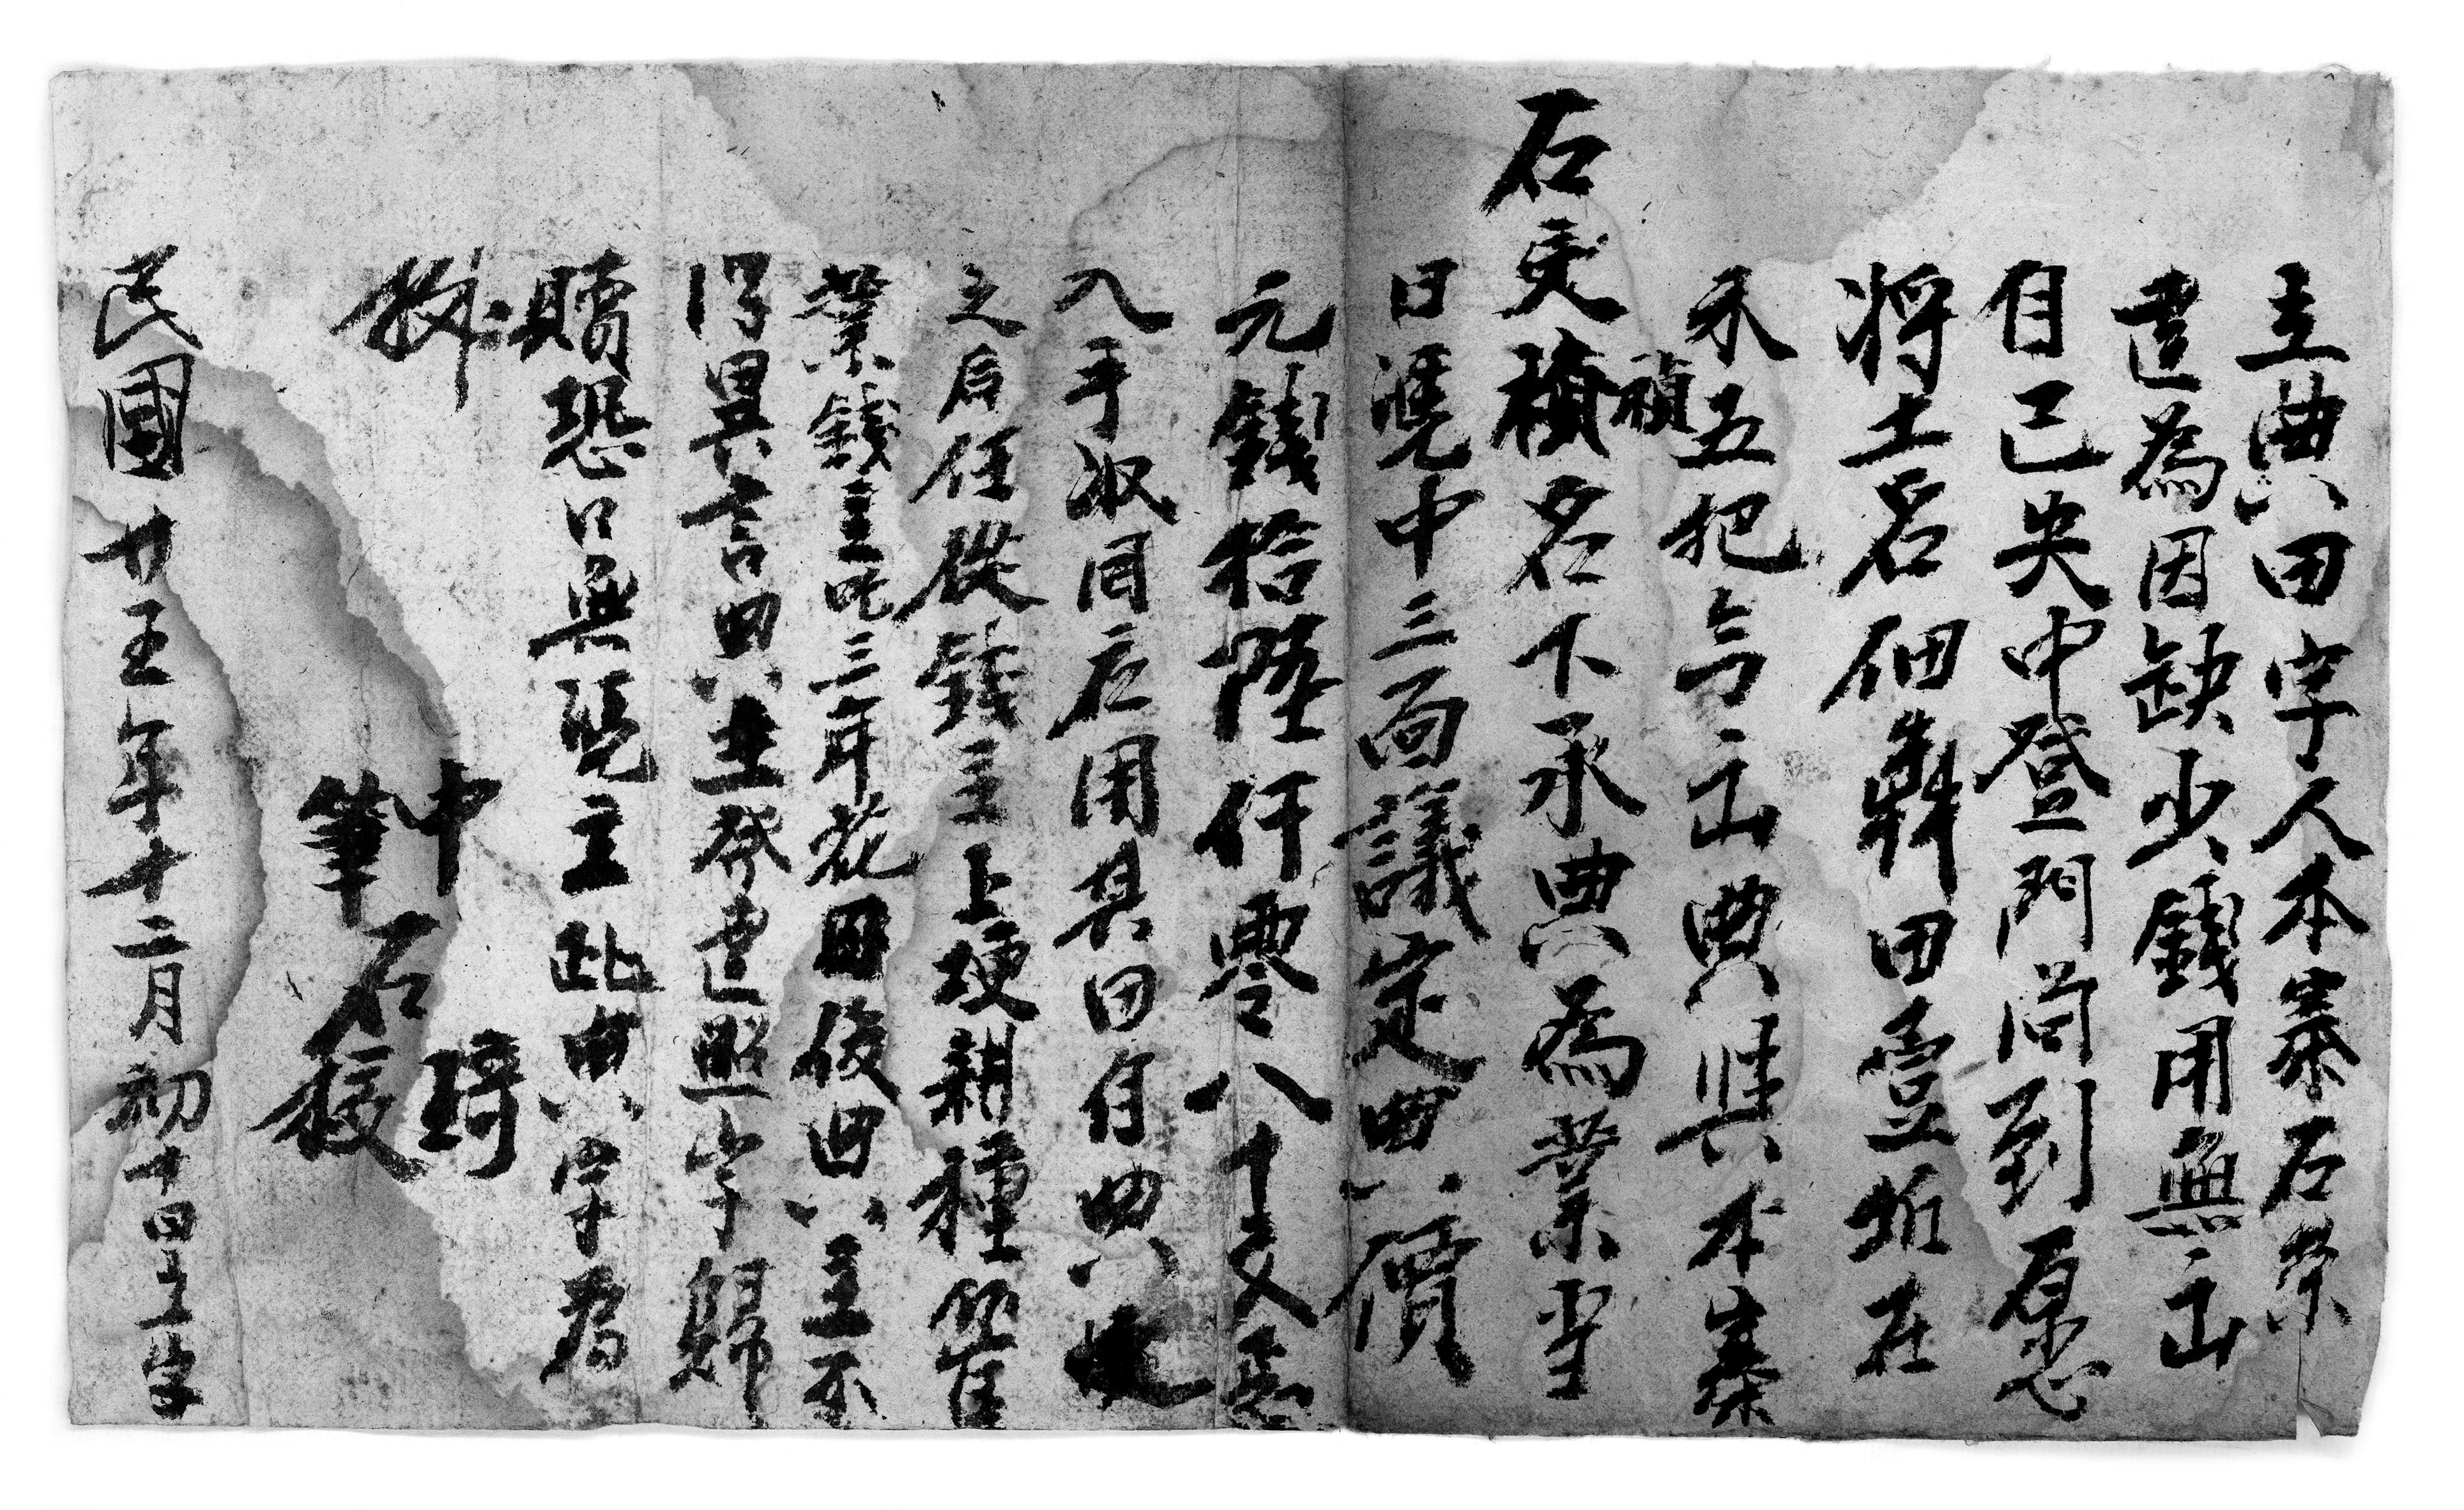 立典田字人本寨石榮
遠為因缺少錢用無出
自己央中登門問到原悉
将土名佃犁田壹坵在
禾五把亏出典與本寨
石爱模名下承典為業當
禎
日凴中三面議定典價
元錢拾陸仟零八十文悉
入手收用应用其田自典
之后任從錢主上埂耕種管
業錢主吃三年花利後典主不
得異言典主發遠照字歸
贖恐口無凴立此典字為
據
中 琦
筆 石稷
民國廿五年十二月初十日立字